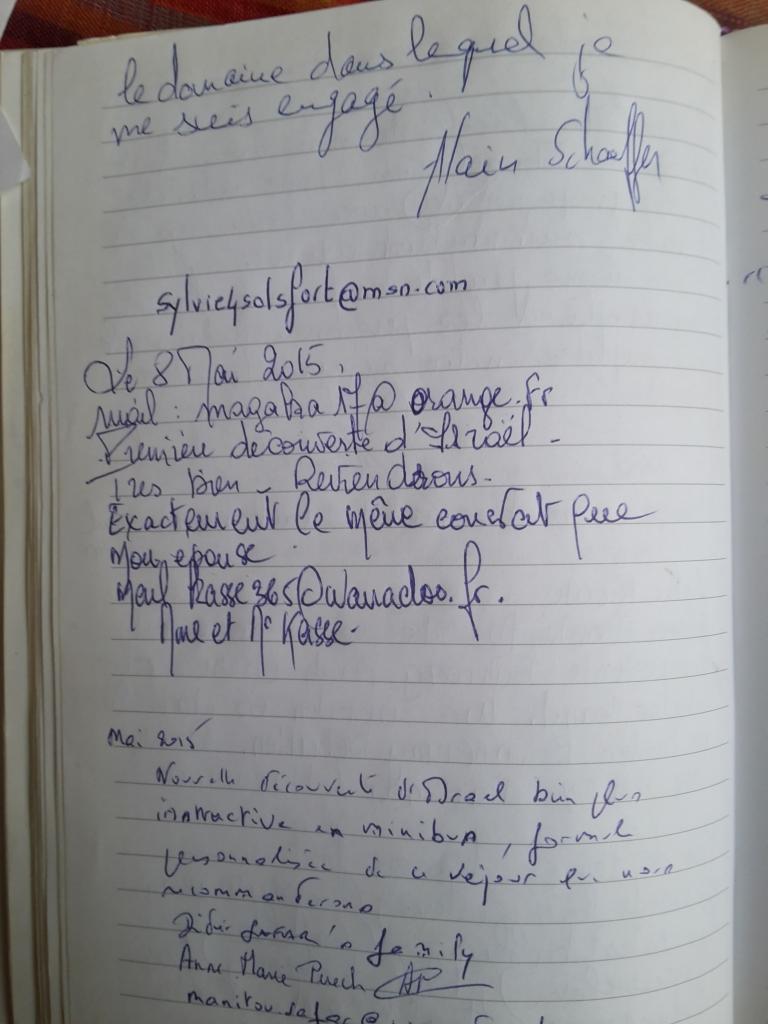 le domaine dans lequel je
me suis engagé.
Alain Schaeffer
sylvie4solsfort@msn.com
Le 8 Mai 2015.
mail : @orange.fr
Première découverte d'Israël -
Très bien - Reviendrons.
Exactement le même constat que
mon epouse
@wanadoo.fr.
Mme et Mr Kasse.
Mai 2015
Nouvelle découverte d'Israel bien plus
instructive en minibus, formule
personnalisée de ce séjour que nous
recommanderons
Didier 's family
Anne Marie Puech AP